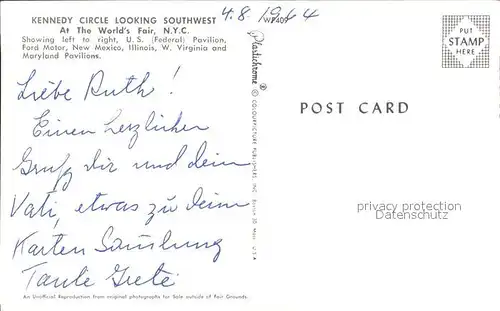 KENNEDY CIRCLE LOOKING SOUTHWEST
At The World's Fair, N.Y.C.
Showing left to right, U.S. (Federal) Pavilion,
Ford Motor, New Mexico, Illinois, W. Virginia and
Maryland Pavilions.
4.8.1964
Liebe Ruth!
Einen herzlichen
Gruß dir und dein
Vati, etwas zu deine
Karten Samlung
Tante Grete
An Unofficial Reproduction from original photographs for Sale outside of Fair Grounds.
Plastichrome ®
© COLOURPICTURE PUBLISHERS, INC. Boston 30, Mass., U.S.A.
POST CARD
PUT
STAMP
HERE
privacy protection
Datenschutz